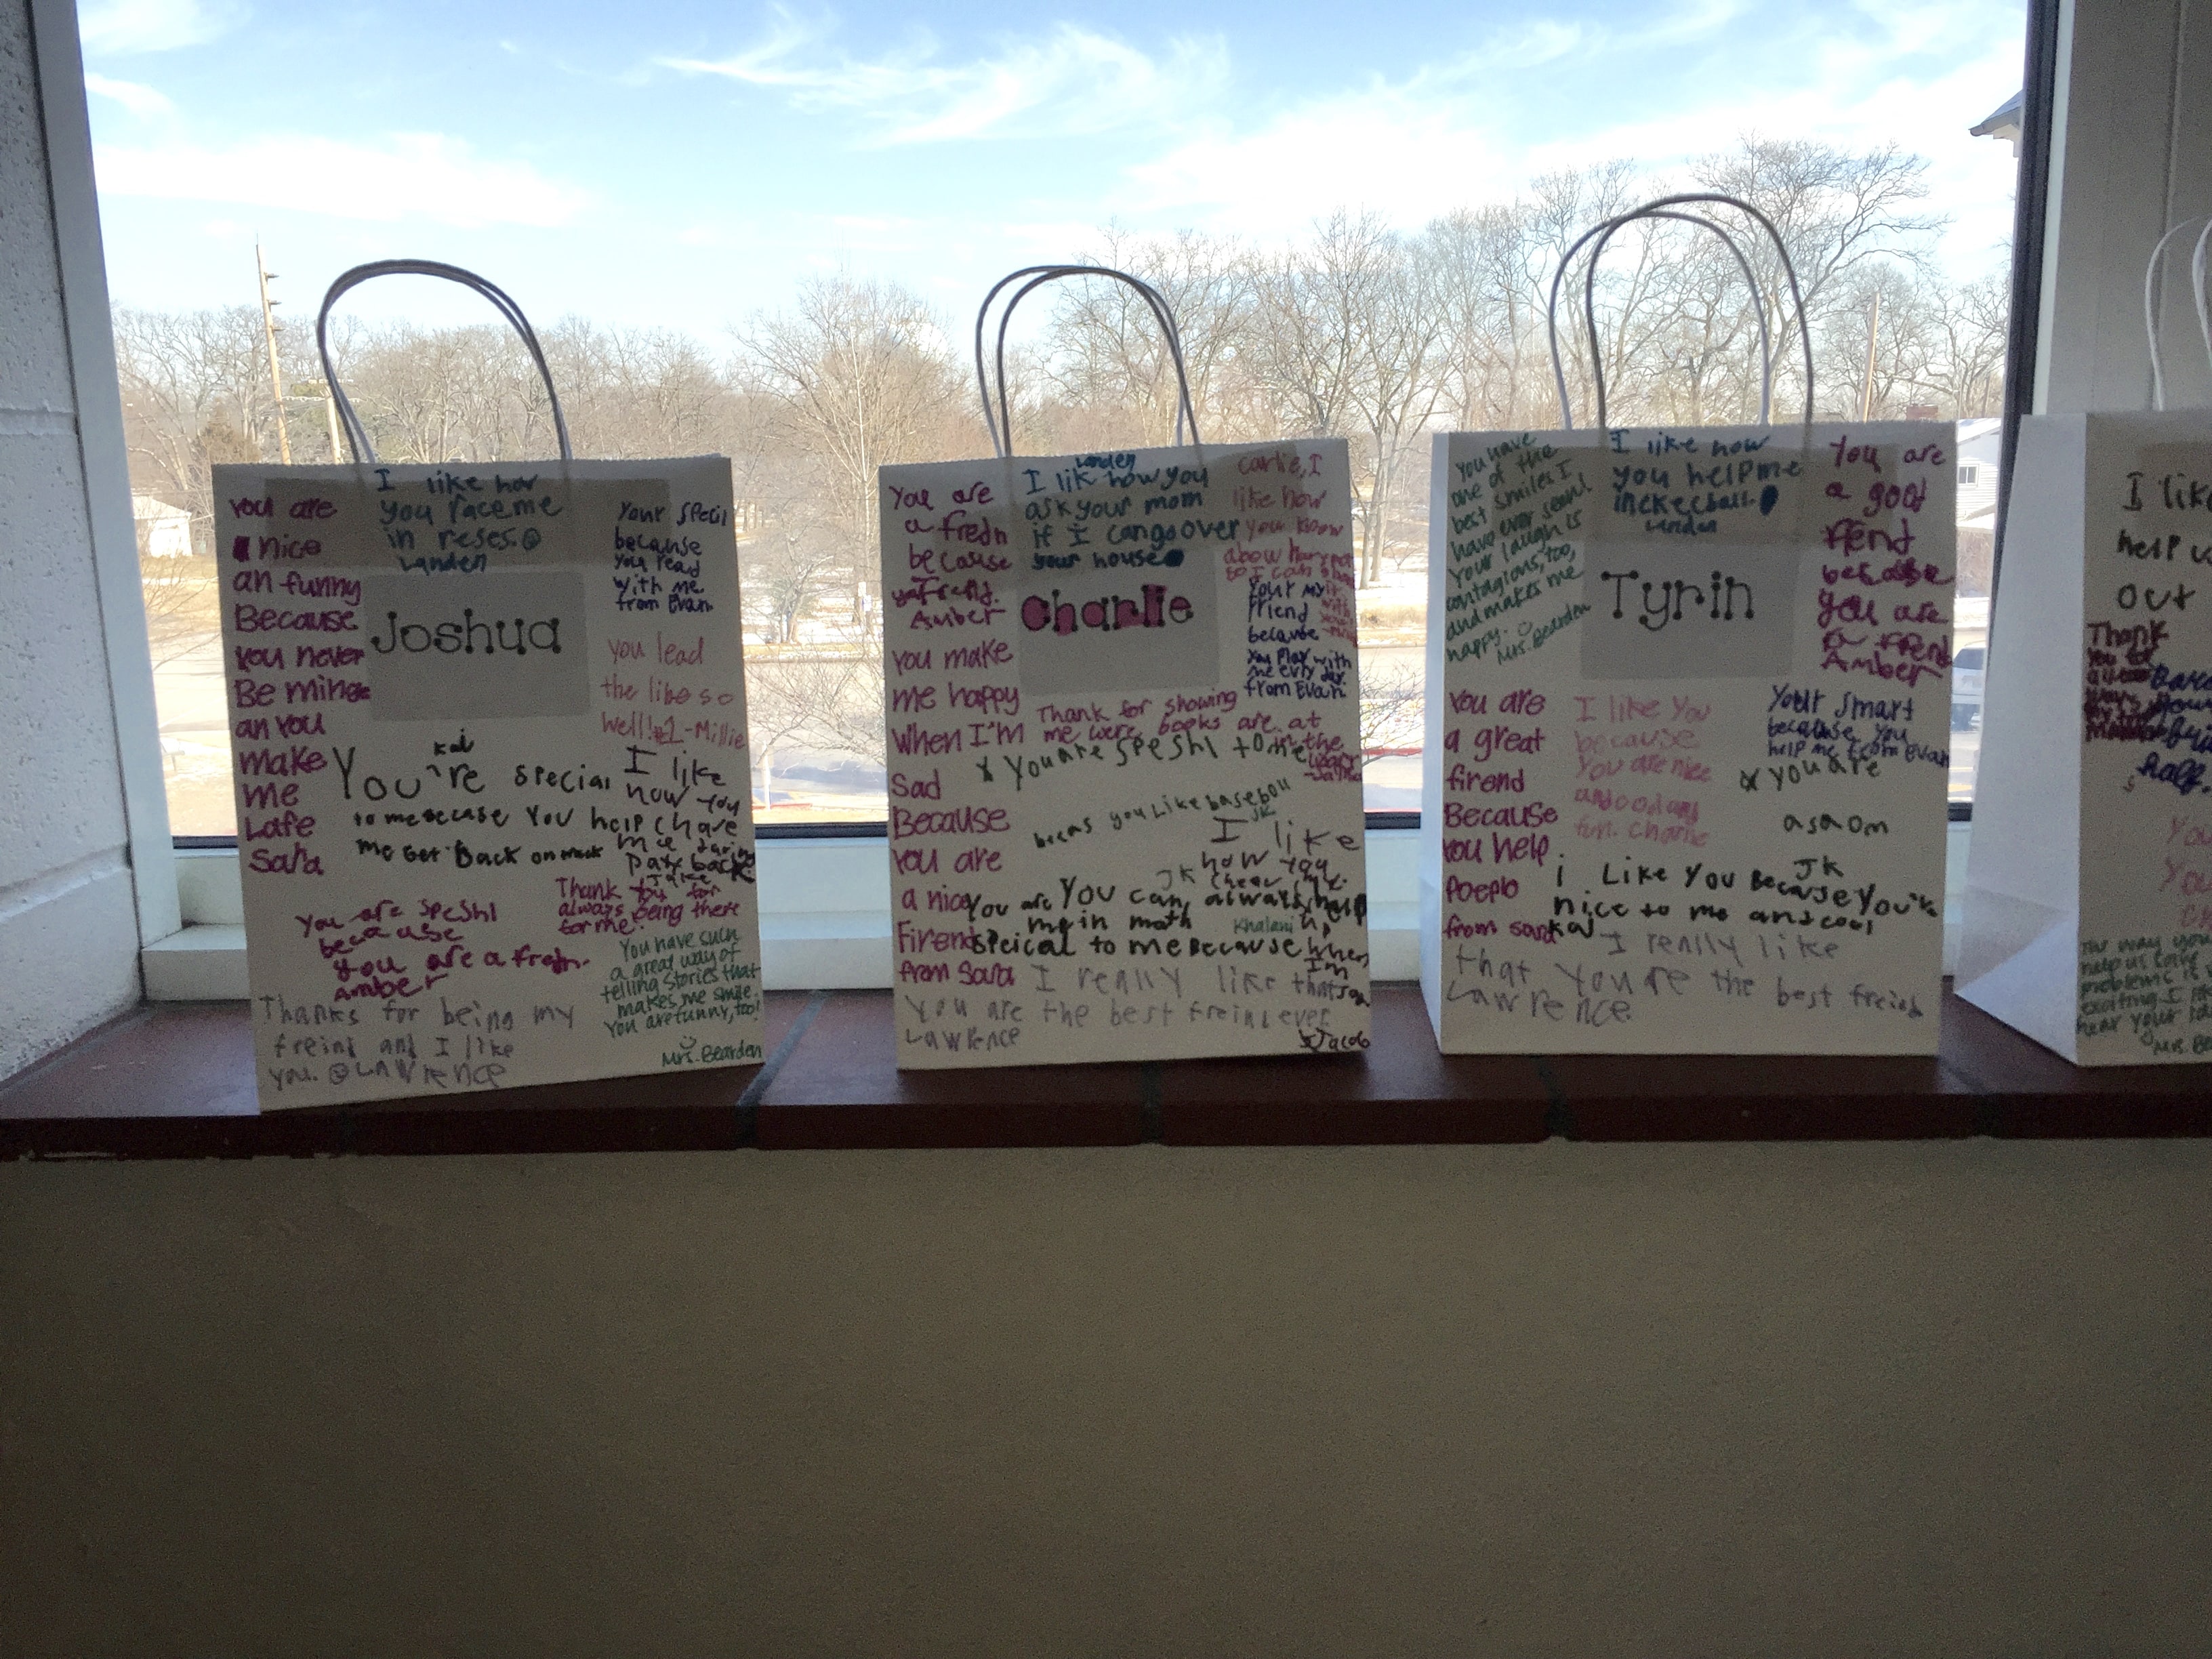 I like how
you race me
in reses.
Landen
you are
nice
an funny
Because
you never
Be mine
an you
make
me
Lafe
Sara
Your specil
because
you read
with me
from Evan.
Joshua
you lead
the line so
well! -Millie
Kai
You're special
to me becase You help
me Get back on track
I like
how you
chare
me
Jake
Thank you for
always being there
for me.
You are speshl
because
you are a fredn.
Amber
You have such
a great way of
telling stories that
makes me smile.
You are funny, too!
Mrs. Bearden
Thanks for being my
freind and I like
you. Lawrence
Landen
I lik how you
ask your mom
if I can go over
your house
You are
a fredn
because
Frend.
Amber
Carlie, I
like how
you know
Charlie
Your my
friend
because
You Play with
me evry day.
from Evan
you make
me happy
When I'm
Sad
Because
You are
a nice
Firend
from Sara
Thank for showing
me were books are at
in the
x You are speshl to me
becas you like basebou
JK
I like
how you
JK
You can always help
me in math
Khalani
You are
speical to me Because when
I'm
sad
Jacob
I really like that
You are the best freind ever
Lawrence
You have
one of the
best smiles I
have ever seen!
Your laugh is
contagious, too,
and makes me
happy.
Mrs. Bearden
I like how
you help me
in ckecball.
Landen
You are
a goot
frend
because
you are
a frend
Amber
Tyrin
You are
a great
firend
Because
You help
Poeplo
from sara
I like You
because
You are nice
and
fun. Charlie
Your smart
because you
help me from Evan
x you are
asaom
JK
i Like You Because You'r
nice to me and cool
Kai
I really like
that You're the best freind
Lawrence
I lik
help u
out
Thank
You
You
The way you
help us
problems is
exciting. I
hear your
Mrs. Be